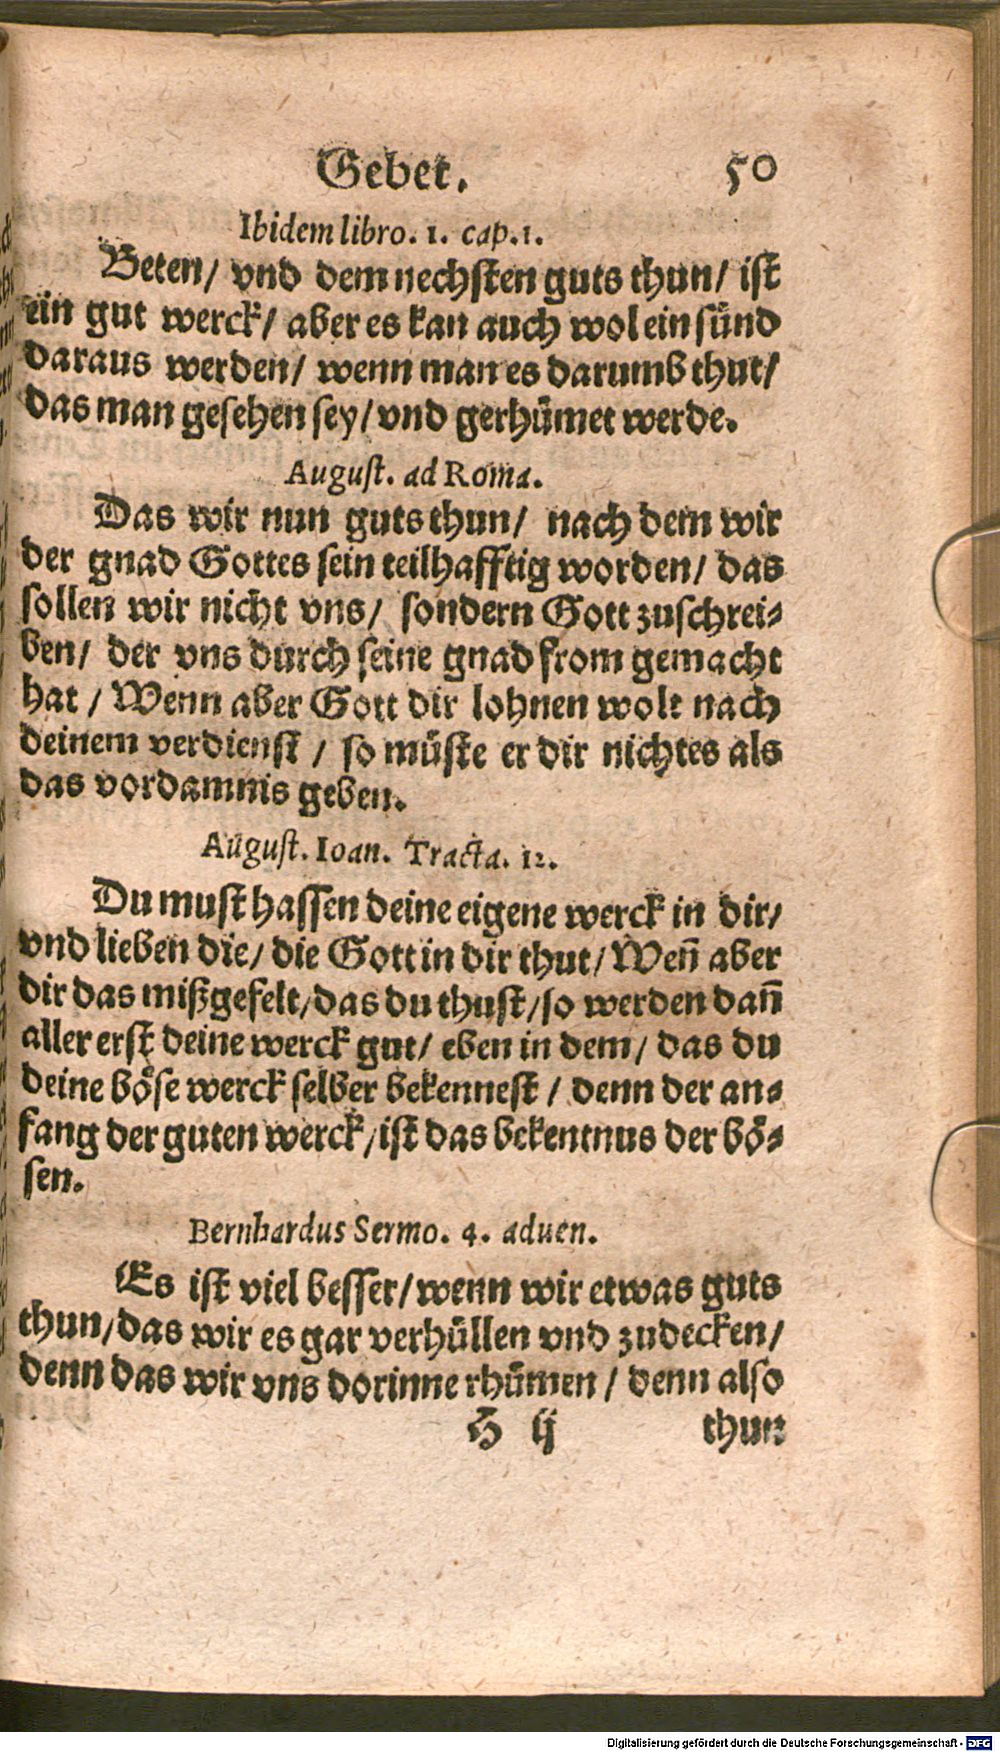 Gebet. 50
Ibidem libro. 1. cap. 1.
Beten/ vnd dem nechsten guts thun/ ist
ein gut werck/ aber es kan auch wol ein sünd
daraus werden/ wenn man es darumb thut/
das man gesehen sey/ vnd gerhümet werde.
August. ad Roma.
Das wir nun guts thun/ nach dem wir
der gnad Gottes sein teilhafftig worden/ das
sollen wir nicht vns/ sondern Gott zuschrei-
ben/ der vns durch seine gnad from gemacht
hat / Wenn aber Gott dir lohnen wolt nach
deinem verdienst / so müste er dir nichtes als
das vordamnis geben.
August. Ioan. Tracta. 12.
Du must hassen deine eigene werck in dir/
vnd lieben die/ die Gott in dir thut/ Weñ aber
dir das mißgefelt/ das du thust/ so werden dañ
aller erst deine werck gut/ eben in dem/ das du
deine böse werck selber bekennest / denn der an-
fang der guten werck/ ist das bekentnus der bö-
sen.
Bernhardus Sermo. 4. aduen.
Es ist viel besser/ wenn wir etwas guts
thun/ das wir es gar verhüllen vnd zudecken/
denn das wir vns dorinne rhümen / denn also
H ij thun
Digitalisierung gefördert durch die Deutsche Forschungsgemeinschaft - DFG